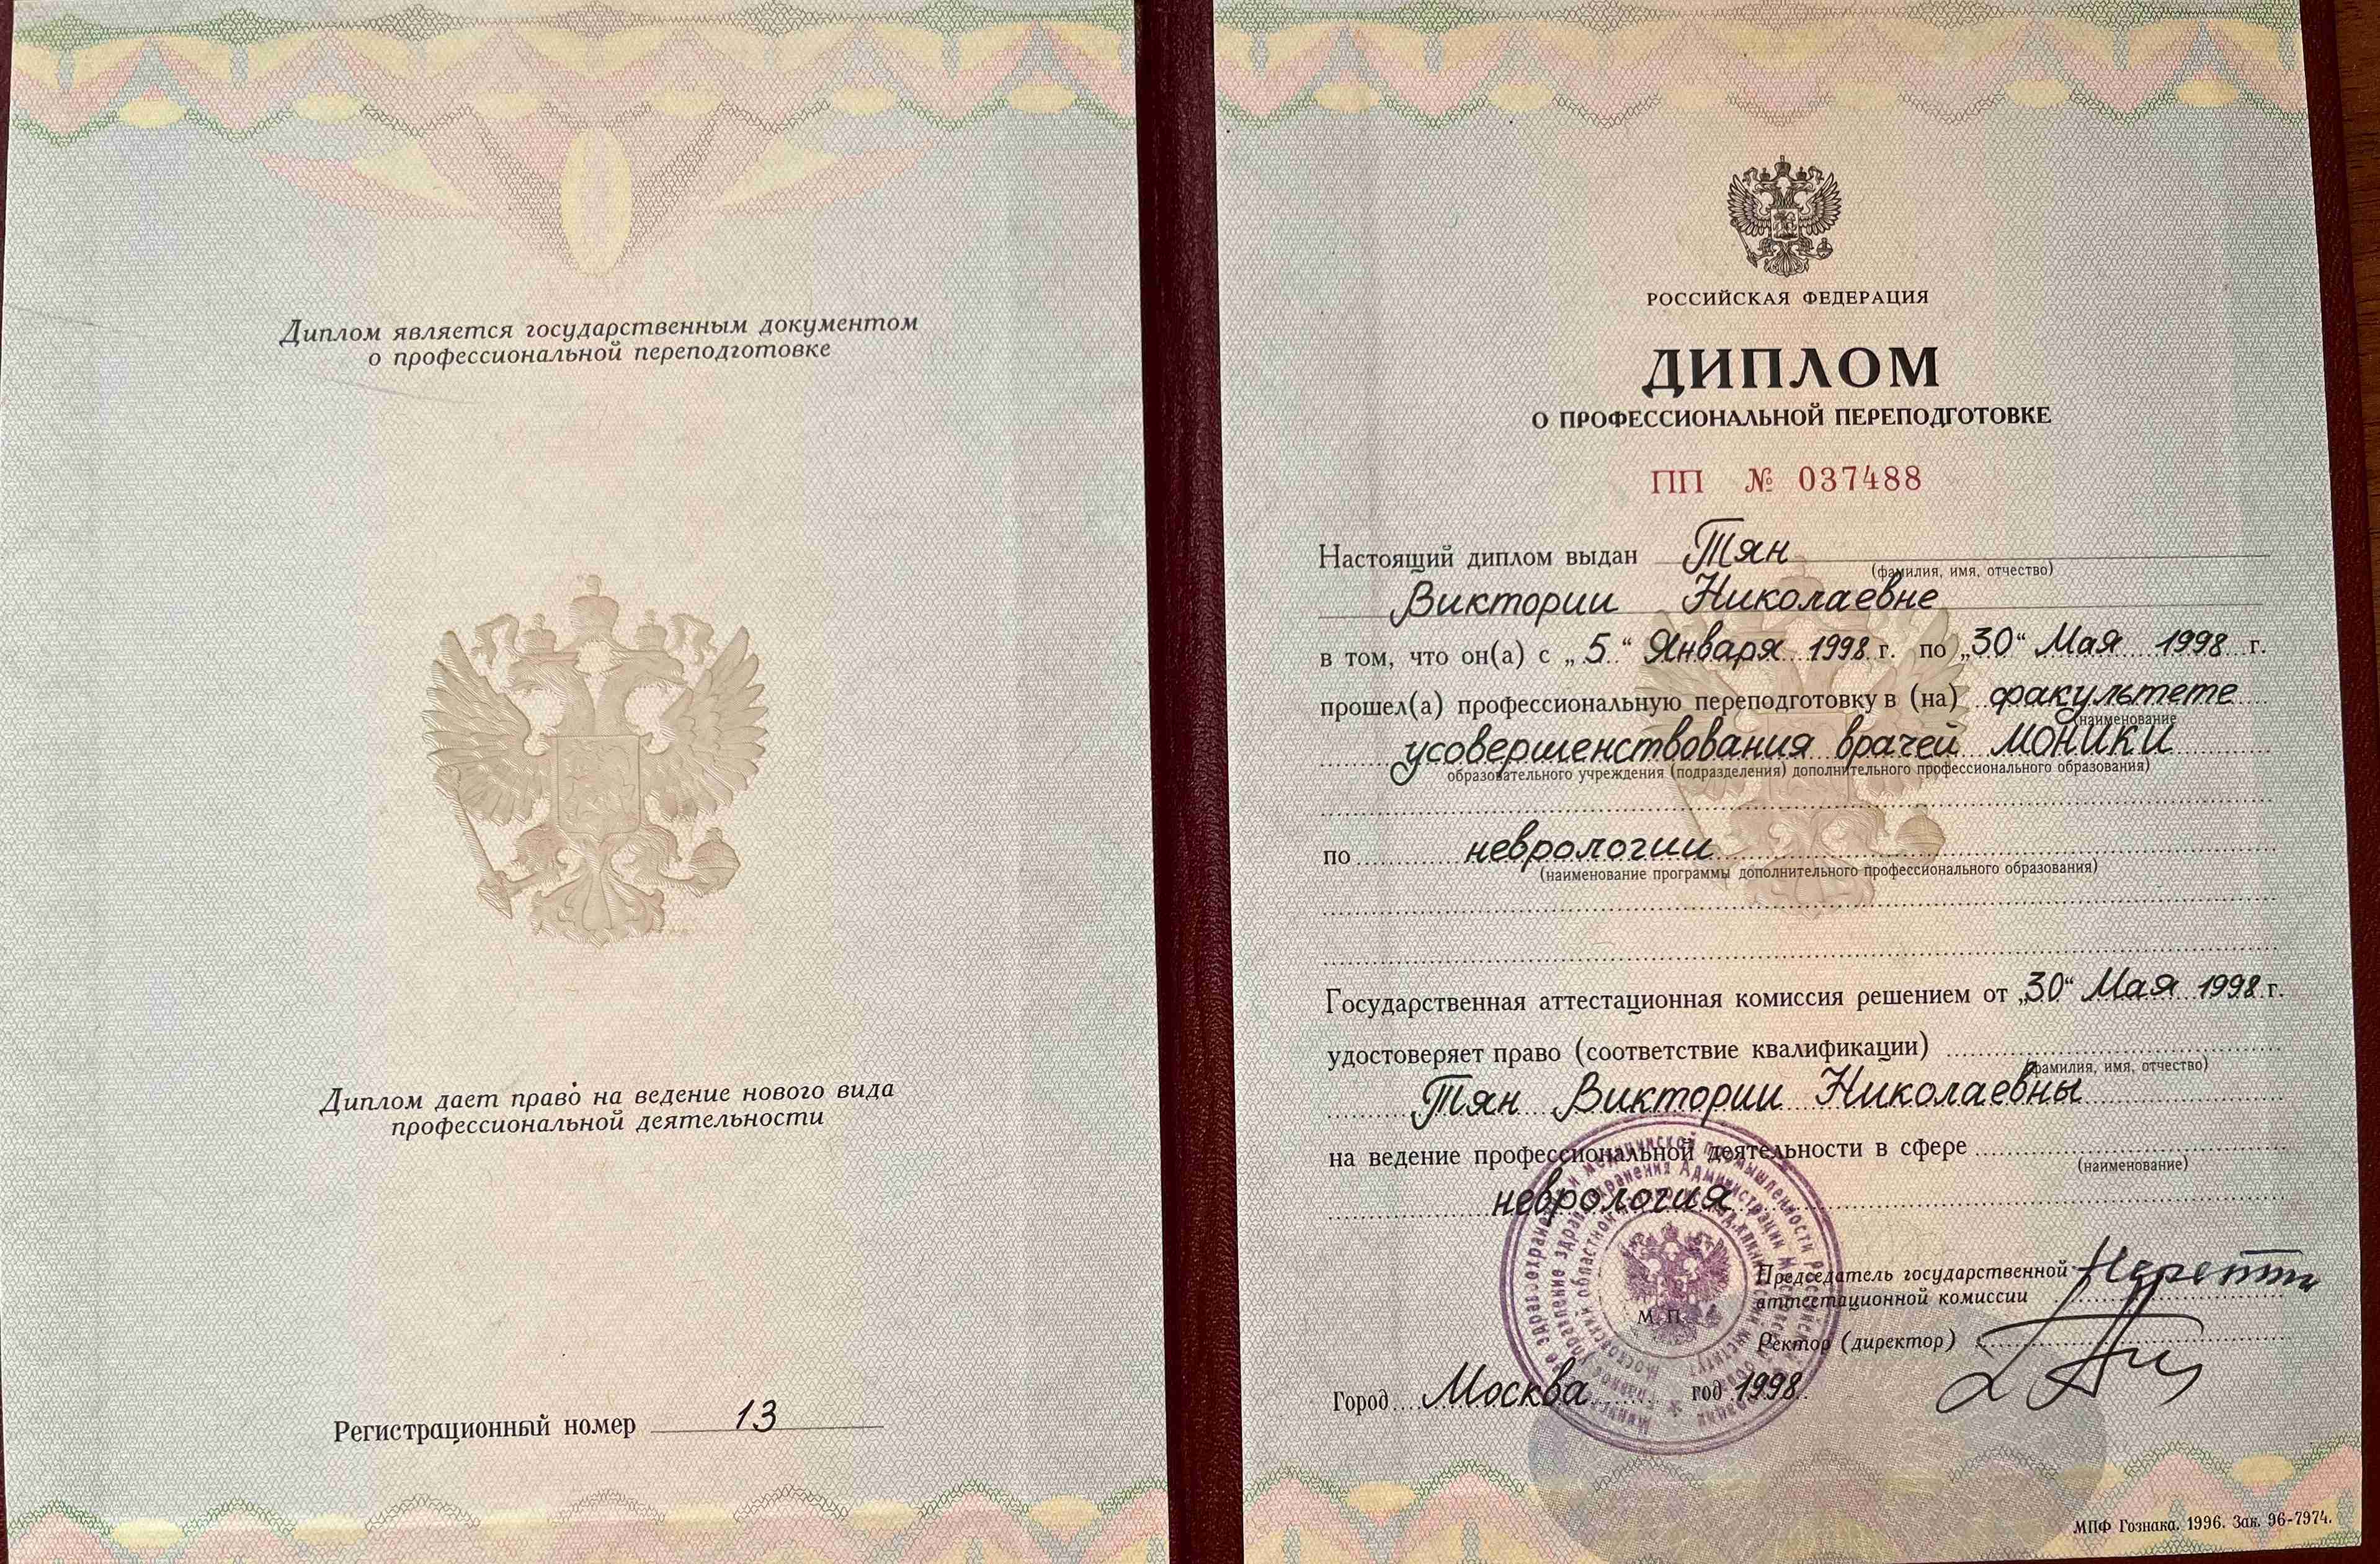 Диплом является государственным документом
о профессиональной переподготовке
Диплом дает право на ведение нового вида
профессиональной деятельности
Регистрационный номер 13
РОССИЙСКАЯ ФЕДЕРАЦИЯ
ДИПЛОМ
О ПРОФЕССИОНАЛЬНОЙ ПЕРЕПОДГОТОВКЕ
ПП № 037488
Настоящий диплом выдан Тян
(фамилия, имя, отчество)
Виктории Николаевне
в том, что он(а) с „5“ Января 1998 г. по „30“ Мая 1998 г.
прошел(а) профессиональную переподготовку в (на) факультете
(наименование
усовершенствования врачей МОНИКИ
образовательного учреждения (подразделения) дополнительного профессионального образования)
по неврологии
(наименование программы дополнительного профессионального образования)
Государственная аттестационная комиссия решением от „30“ Мая 1998 г.
удостоверяет право (соответствие квалификации)
(фамилия, имя, отчество)
Тян Виктории Николаевны
на ведение профессиональной деятельности в сфере
(наименование)
неврология
Председатель государственной
аттестационной комиссии
М. П.
Ректор (директор)
Город Москва год 1998
МПФ Гознака. 1996. Зак. 96-7974.